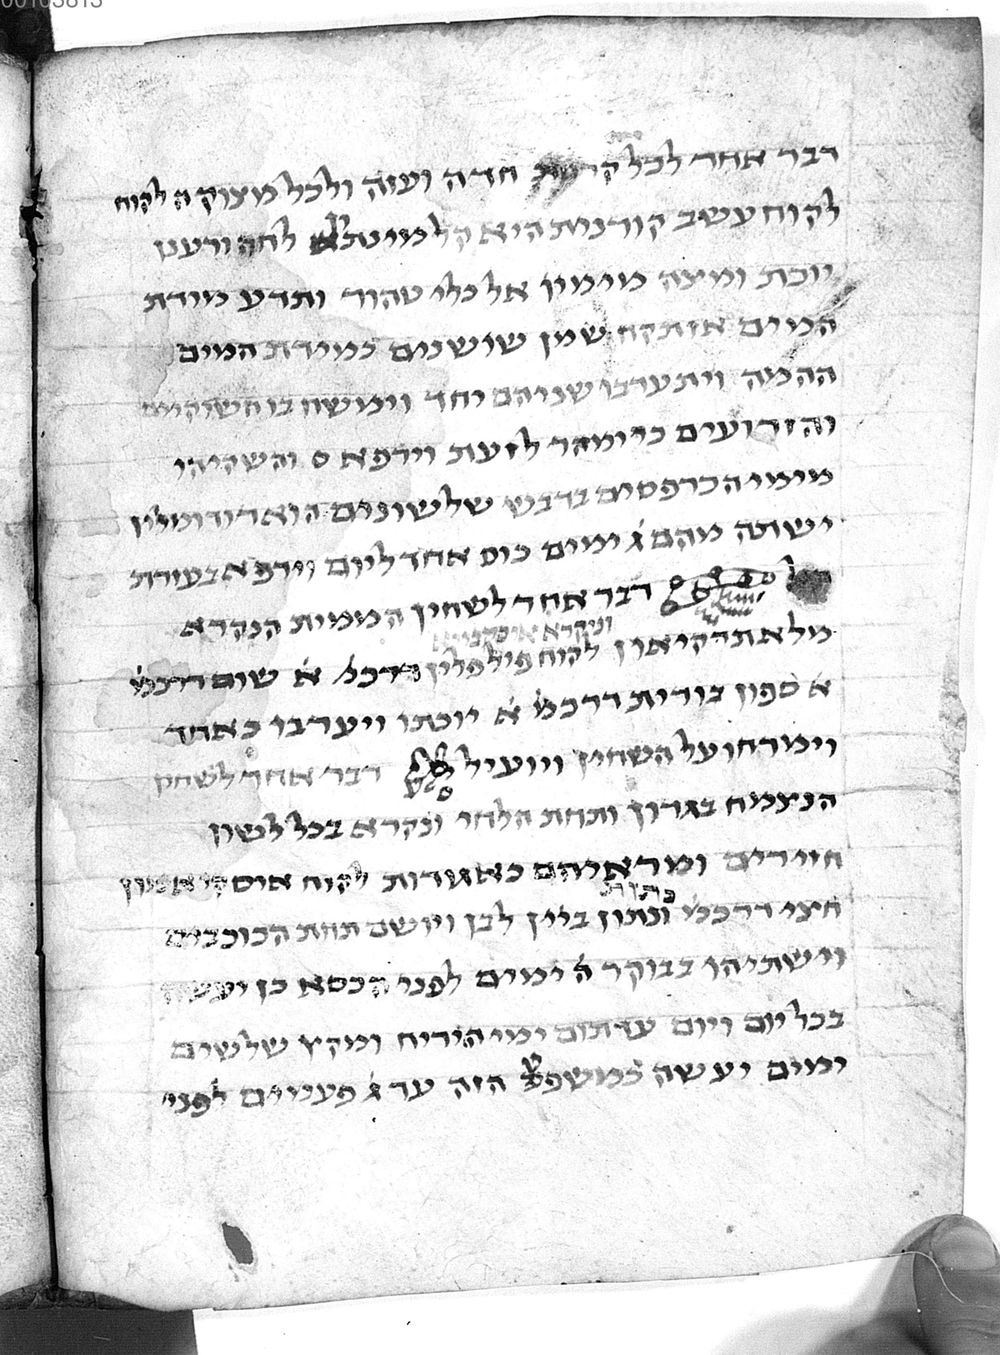 00103813
דבר אחר לכל קדחת חדה ועזה ולכל מצוקה לקוח
לקוח עשב קורנית היא קלמינתא לחה ורענן
יוכת ומצה מימיו אל כלי טהור ותדע מידת
המים אז תקח שמן שושנים כמידת המים
ההמה ויתערבו שניהם יחד וימשח בו
והזרועים כי ימהר לזעת וירפא ס והשקיהו
מימי הכרפסים בדבש שלשונים הוא
ישתה מהם ג ימים כוס אחד ליום וירפא בעזרת
דבר אחר לשחין הממית הנקרא
ונקרא
לקוח פילפלין דרכמ א שום דרכמ
א ספון בורית דרכמ א יוכתו ויערבו כאחד
וימרחו על השחין ויועיל דבר אחר לשחין
הנצמח בגרון ותחת הלחי ונקרא בכל לשון
חזירים ומראיהם כאגודות לקוח
כתות
חצי דרכמ ונתון ביין לבן ויושם תחת הכוכבים
וישתיהו בבוקר ה ימים לפני הכסא כן יעשה
בכל יום ויום עד תום ימי הירח ומקץ שלשים
ימים יעשה כמשפט הזה עד ג פעמים לפני